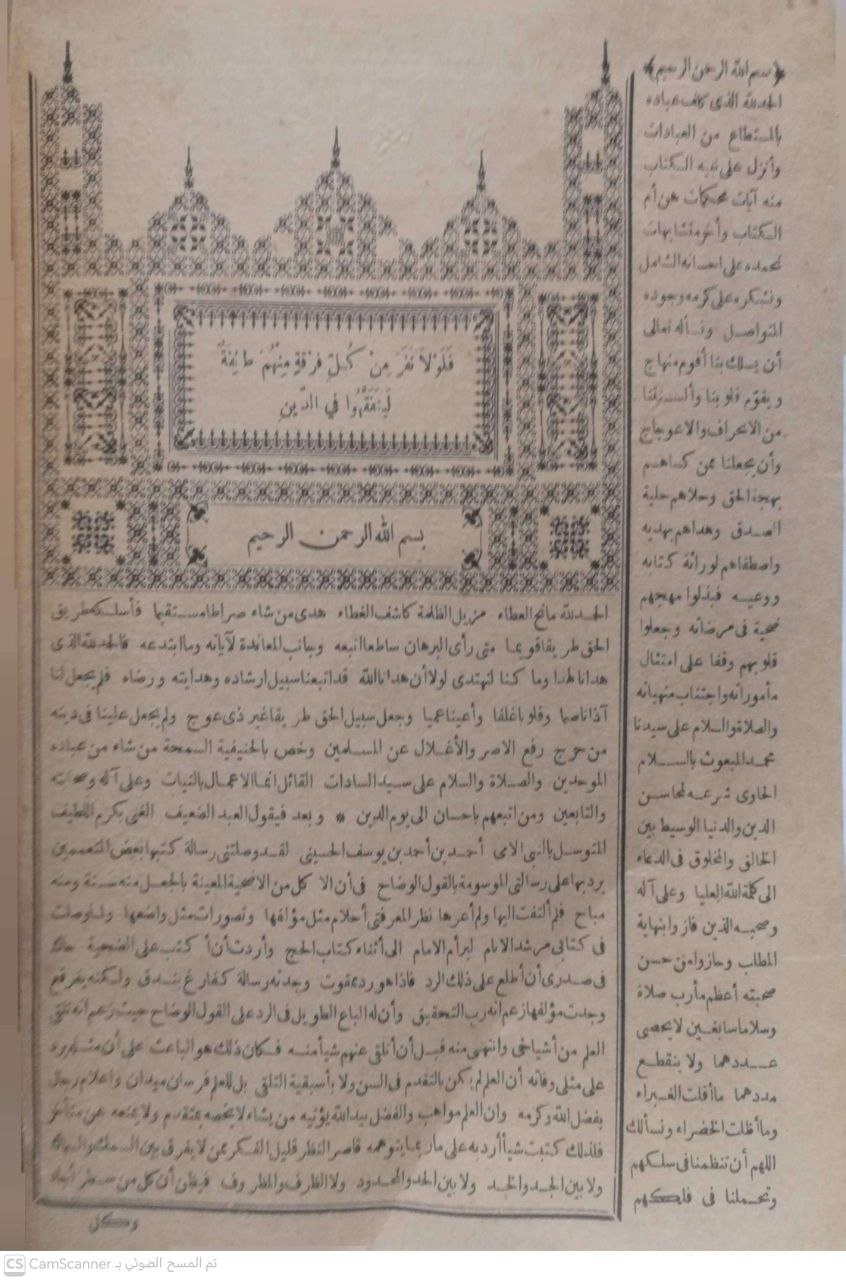 فَلَوْلَا نَفَرَ مِنْ كُلِّ فِرْقَةٍ مِنْهُمْ طَائِفَةٌ
لِيَتَفَقَّهُوا فِي الدِّينِ
بسم الله الرحمن الرحيم
الحمدلله مانح العطاء مزيل الظلمة كاشف الغطاء هدى من شاء صراطا مستقيما فأسلكه طريق
الحق طريقا قويما متى رأى البرهان ساطعا اتبعه وجانب المعاندة لآياته وما ابتدعه فالحمدلله الذى
هدانا لهذا وما كنا لنهتدى لولا أن هدانا الله قد اتبعنا سبيل ارشاده وهدايته ورضاه فلم يجعل لنا
آذانا صما وقلوبا غلفا وأعينا عميا وجعل سبيل الحق طريقا غير ذى عوج ولم يجعل علينا فى دينه
من حرج رفع الاصر والأغلال عن المسلمين وخص بالحنيفية السمحة من شاء من عباده
الموحدين والصلاة والسلام على سيد السادات القائل انما الاعمال بالنيات وعلى آله وصحابته
والتابعين ومن اتبعهم باحسان الى يوم الدين * وبعد فيقول العبد الضعيف الغنى بكرم اللطيف
المتوسل بالنبى الامى أحمد بن أحمد بن يوسف الحسينى لقد وصلتنى رسالة كتبها بعض المتعممين
يرد بها على رسالتى الموسومة بالقول الوضاح فى أن الاكل من الاضحية المعينة بالجعل منه سنة ومنه
مباح فلم ألتفت اليها ولم أعرها نظر المعرفتى أحلام مثل مؤلفها وتصورات مثل واضعها ولما وصلت
فى كتابى مرشد الانام لبر أم الامام الى أثناء كتاب الحج وأردت أن أكتب على الضحية حاك
فى صدرى أن أطلع على ذلك الرد فاذا هو رد ممقوت وجدته رسالة كفارغ بندق ولكنه يفرقع
وجدت مؤلفها زعم انه رب التحقيق وأن له الباع الطويل فى الرد على القول الوضاح حيث زعم انه تلقى
العلم من أشياخى وانتهى منه قبل أن أتلقى عنهم شيأ منه فكان ذلك هو الباعث على أن
على مثلى وفاته أن العلم لم يكن بالتقدم فى السن ولا بأسبقية التلقى بل للعلم فرسان ميدان وأعلام رجال
بفضل الله وكرمه وان العلم مواهب والفضل بيد الله يؤتيه من يشاء لا يخصه بمتقدم ولا يمنعه عن متأخر
فلذلك كتبت شيأ أرد به على ما ربما يتوهمه قاصر النظر قليل الفكر ممن لا يفرق بين السمك والسماك
ولا بين الجد والخد ولا بين الحد والمحدود ولا الظرف والمظروف فيظن أن كل من سطر
وكل
﴿بسم الله الرحمن الرحيم﴾
الحمدلله الذى كلف عباده
بالمستطاع من العبادات
وأنزل على نبيه الكتاب
منه آيات محكمات هن أم
الكتاب وأخر متشابهات
نحمده على احسانه الشامل
ونشكره على كرمه وجوده
المتواصل ونسأله تعالى
أن يسلك بنا أقوم منهاج
ويقوم قلوبنا وألسنتنا
من الانحراف والاعوجاج
وأن يجعلنا ممن كساهم
بهجة الحق وحلاهم حلية
الصدق وهداهم بهديه
واصطفاهم لوراثة كتابه
ووعيه فبذلوا مهجهم
ضحية فى مرضاته وجعلوا
قلوبهم وقفا على امتثال
مأموراته واجتناب منهياته
والصلاة والسلام على سيدنا
محمد المبعوث بالسلام
الحاوى شرعه لمحاسن
الدين والدنيا الوسيط بين
الخالق والمخلوق فى الدعاء
الى كلمة الله العليا وعلى آله
وصحبه الذين فازوا بنهاية
المطلب وحازوا من حسن
صحبته أعظم مأرب صلاة
وسلاما سابغين لا يحصى
عددهما ولا ينقطع
مددهما ما أقلت الغبراء
وما أظلت الخضراء ونسألك
اللهم أن تنظمنا فى سلكهم
وتحملنا فى فلكهم
CS CamScanner تم المسح الضوئي بـ